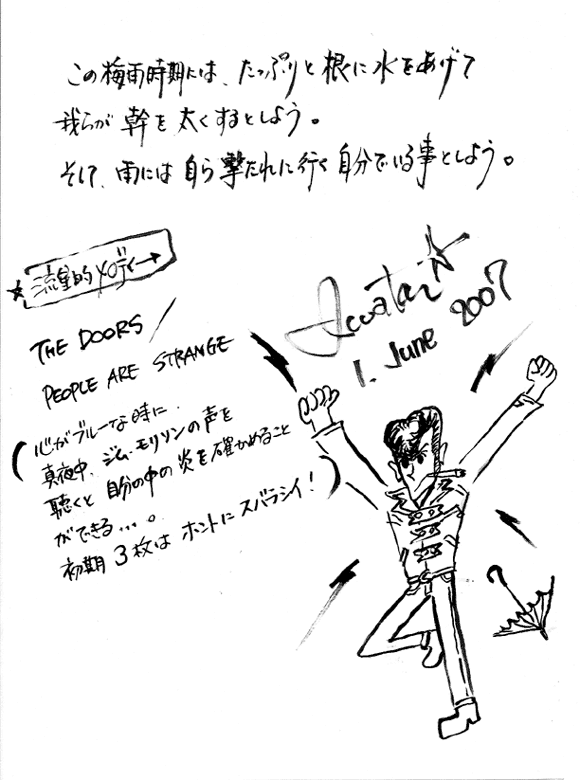 この梅雨時期には、たっぷりと根に水をあげて
我らが幹を太くするとしよう。
そして、雨には自ら撃たれに行く自分でいる事としよう。
★流星的メロディー→
THE DOORS /
PEOPLE ARE STRANGE
(心がブルーな時に、
真夜中、ジム・モリソンの声を
聴くと自分の中の炎を確かめること
ができる…。
初期3枚はホントにスバラシイ!)
1. June 2007